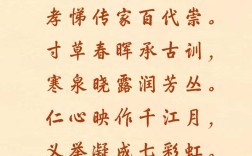 孝悌传家百代崇。
寸草春晖承古训，
寒泉晓露润芳丛。
仁心映作千江月，
义举凝成七彩虹。